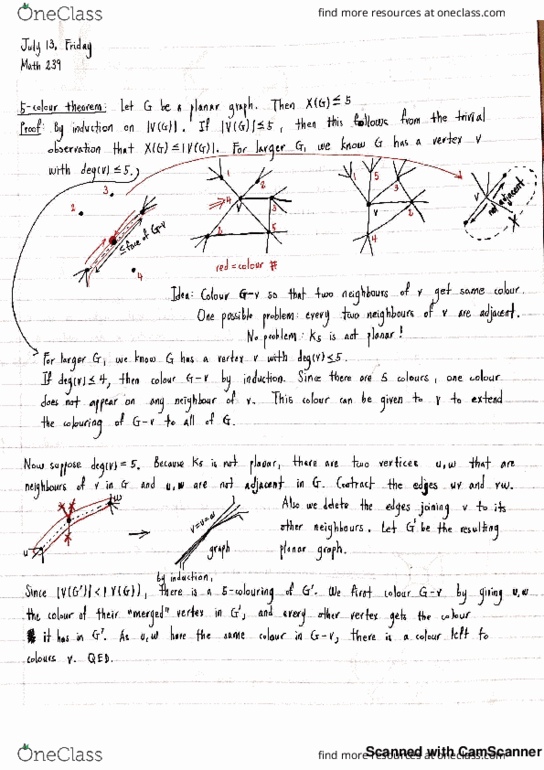 OneClass
find more resources at oneclass.com
July 13, Friday
Math 239
5-colour theorem: Let G be a planar graph. Then X(G) ≤ 5
Proof: By induction on |V(G)|. If |V(G)| ≤ 5, then this follows from the trivial
observation that X(G) ≤ |V(G)|. For larger G, we know G has a vertex v
with deg(v) ≤ 5.
3
2
4
≤ face of G-v
1
2
4
v
3
2
5
1
5
3
v
2
4
not adjacent
red = colour #
Idea: Colour G-v so that two neighbours of v get same colour.
One possible problem: every two neighbours of v are adjacent.
No problem: K5 is not planar!
For larger G, we know G has a vertex v with deg(v) ≤ 5.
If deg(v) ≤ 4, then colour G-v by induction. Since there are 5 colours, one colour
does not appear on any neighbour of v. This colour can be given to v to extend
the colouring of G-v to all of G.
Now suppose deg(v) = 5. Because K5 is not planar, there are two vertices u,w that are
neighbours of v in G and u,w are not adjacent in G. Contract the edges uv and vw.
u
w
v=u=w
graph
Also we delete the edges joining v to its
other neighbours. Let G' be the resulting
planar graph.
by induction,
Since |V(G')| < |V(G)|, there is a 5-colouring of G'. We first colour G-v by giving u,w
the colour of their "merged" vertex in G', and every other vertex gets the colour
it has in G'. As u,w have the same colour in G-v, there is a colour left to
colours v. QED.
Scanned with CamScanner
OneClass
find more resources at oneclass.com